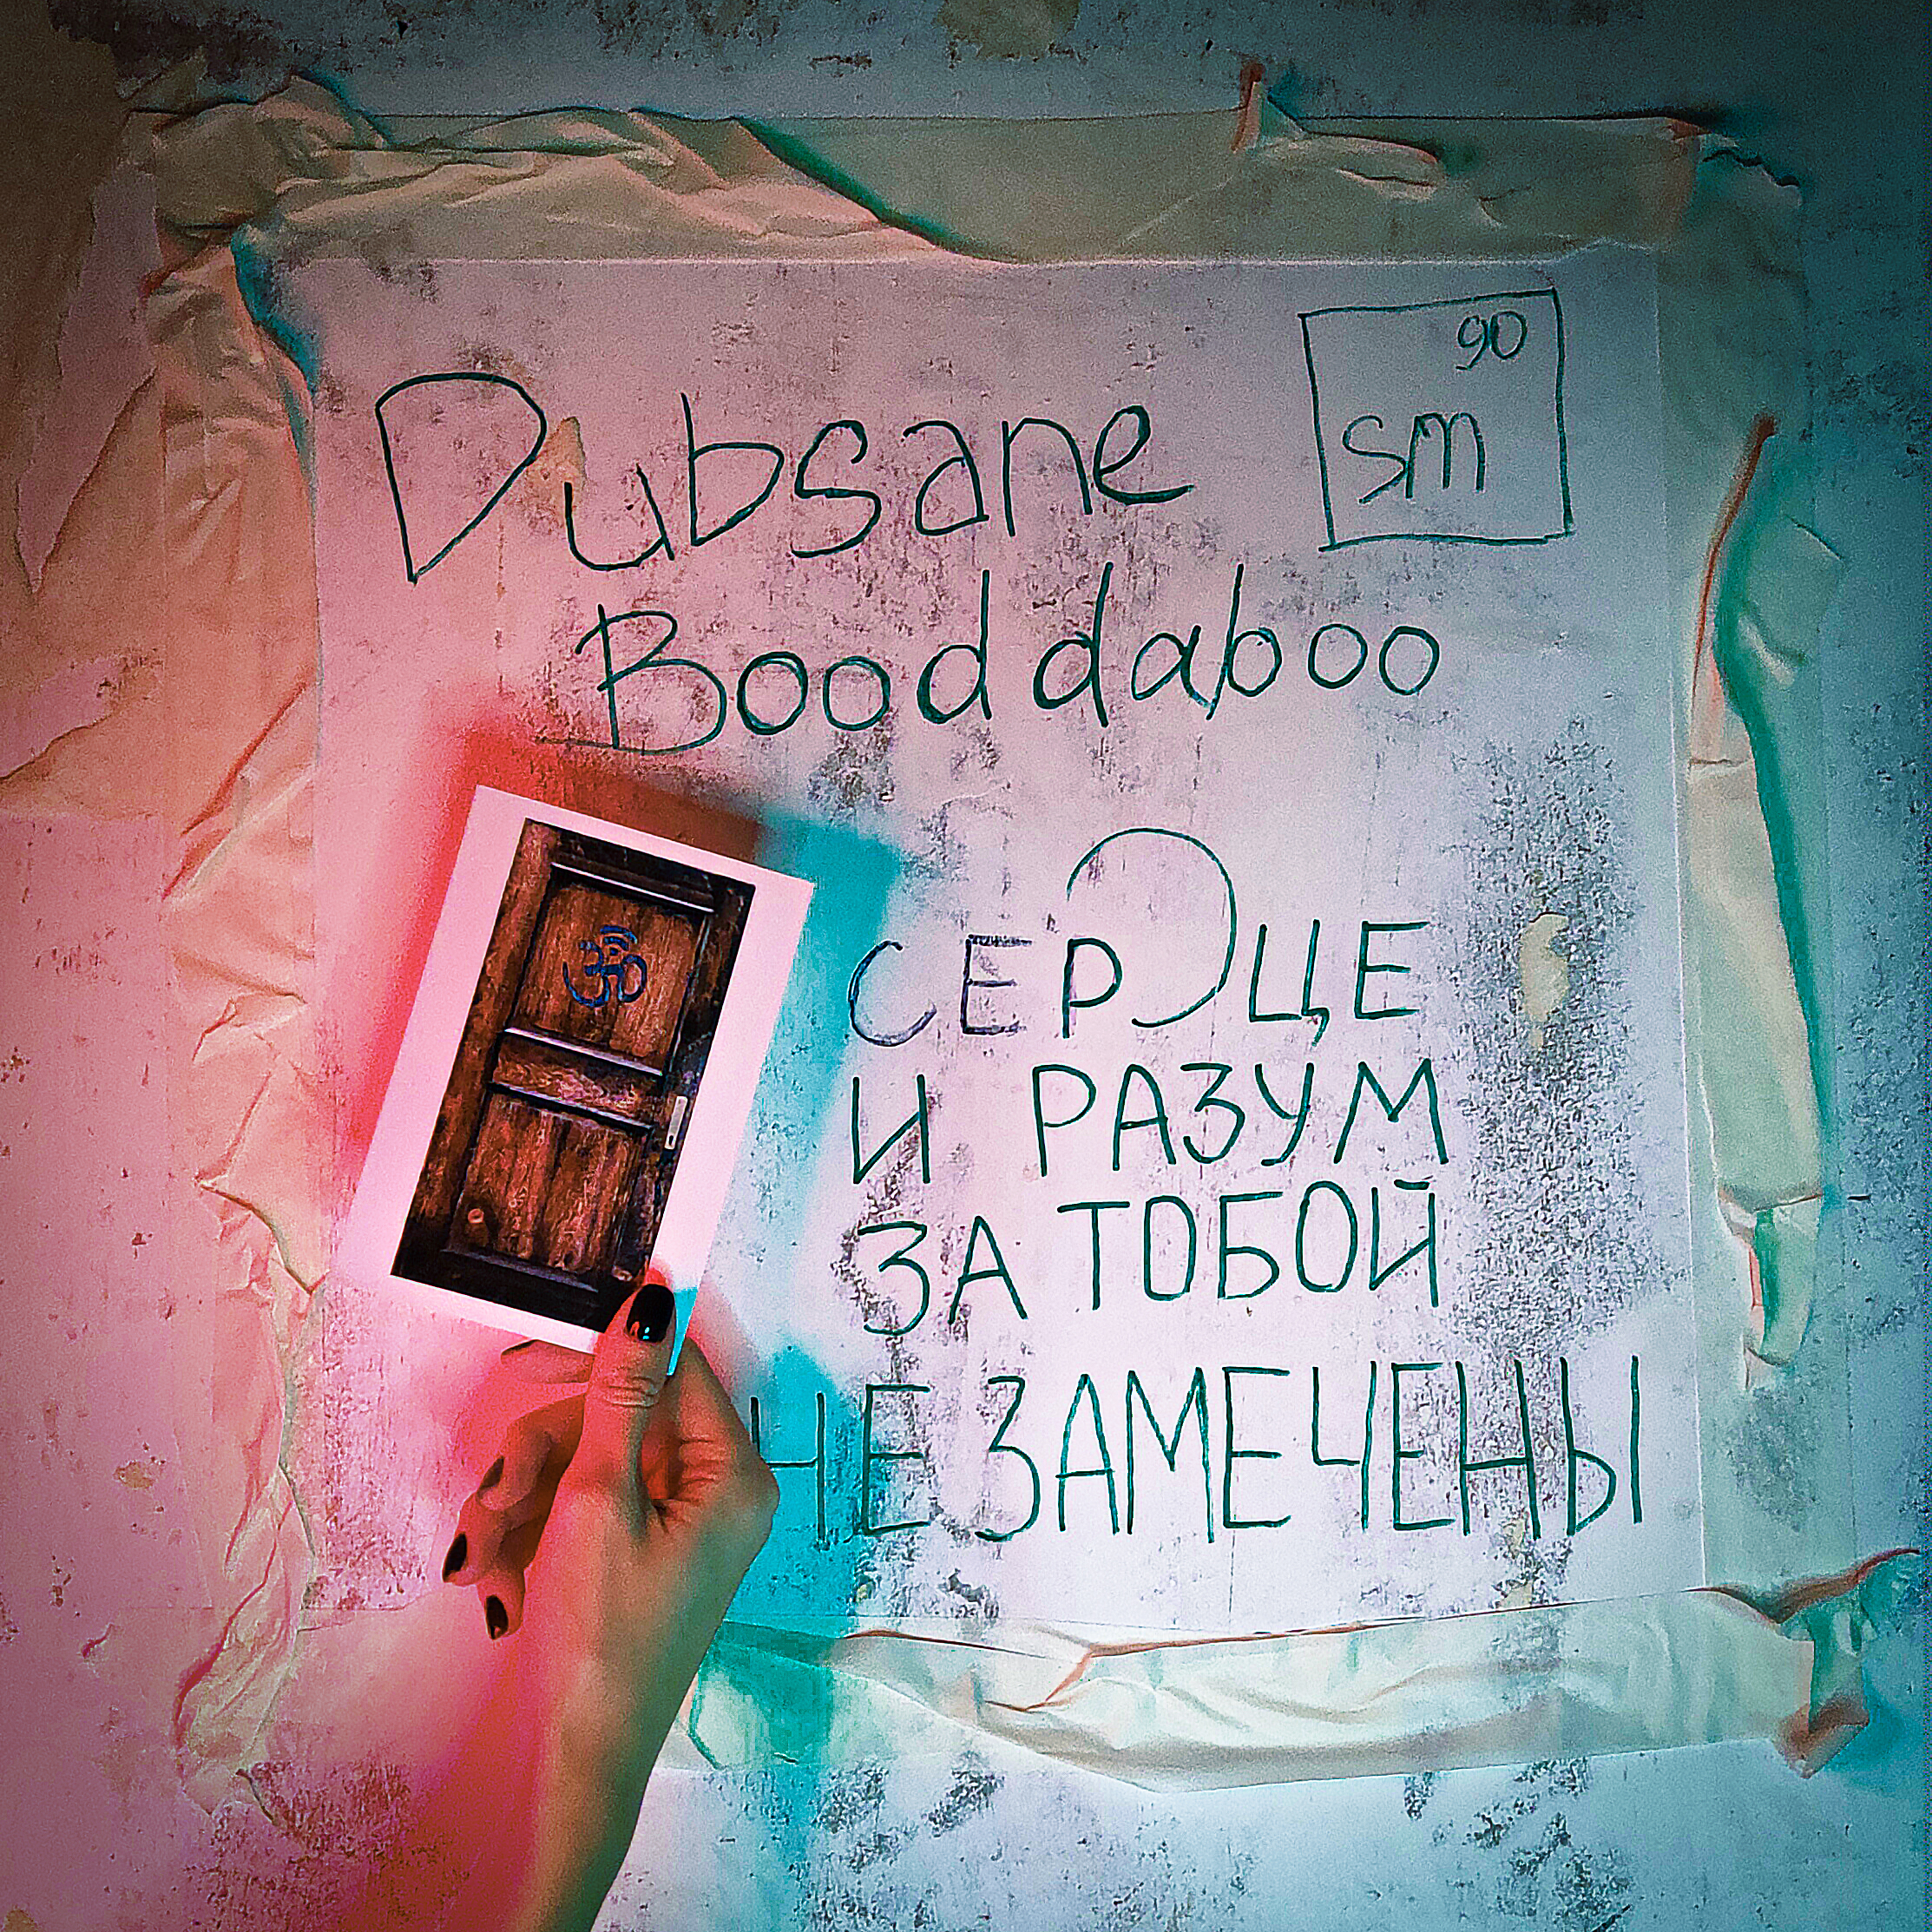 Dubsane
90
sm
Booddaboo
СЕРДЦЕ
И РАЗУМ
ЗА ТОБОЙ
НЕ ЗАМЕЧЕНЫ
ॐ